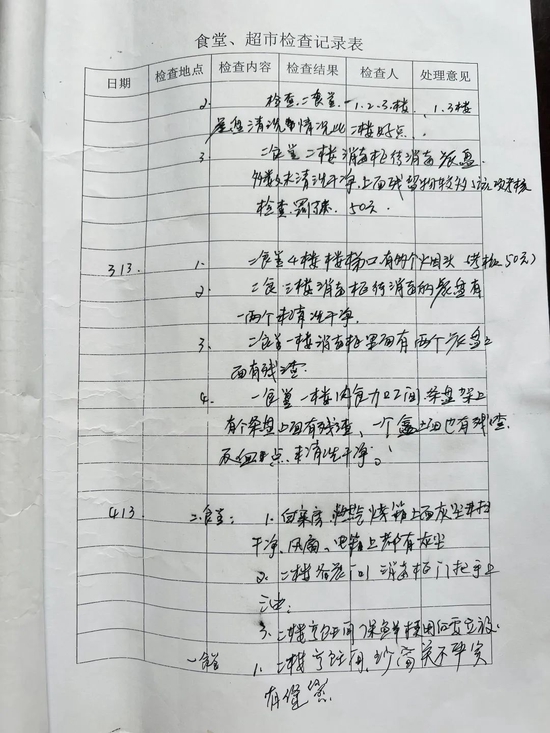 食堂、超市检查记录表
日期 检查地点 检查内容 检查结果 检查人 处理意见
2. 检查二食堂一1.2.3.楼, 1.3楼
盘清洗 情况比二楼好点.
3. 二食堂二楼消毒柜待消毒 盘
未清洗干净,上面残留物较多
检查 50元.
313. 1. 二食堂4楼楼梯口有两个烟头 (考核50元)
2. 二食三楼消毒柜待消毒的餐盘有
一两个未清洗干净.
3. 二食堂一楼消毒柜里面有两个 盘上
面有残渣.
4. 一食堂一楼肉食加工间.菜盘架上
有个菜盘上面有残渣、一个盆上面也有残渣
点.未清洗干净。
413. 二食堂: 1. 白案房, 烤箱上面灰尘未扫
干净.风扇、电箱上都有灰尘
2. 二楼 消毒柜门把手上
3. 二楼烹饪间 保鲜 使用
一食堂 1. 二楼烹饪间,纱窗关不严实
有缝